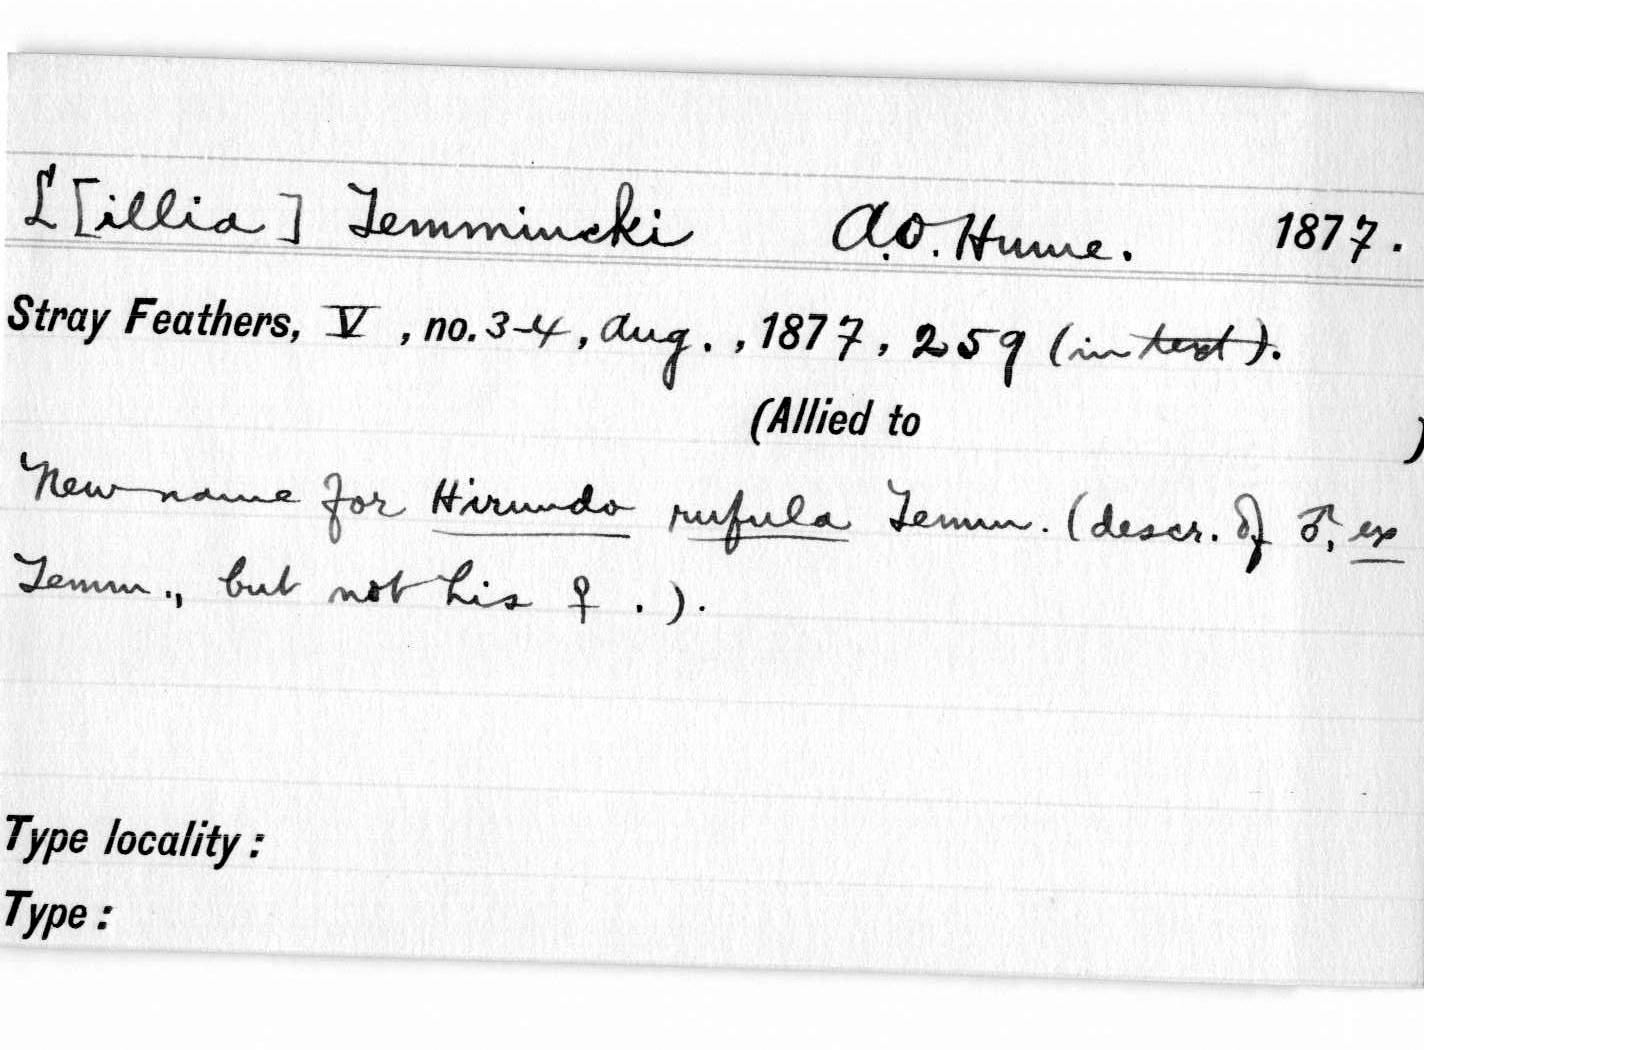 L[illia] Temmincki A.O. Hume. 1877.
Stray Feathers, V, no. 3-4, Aug., 1877, 259 (in text).
(Allied to )
New name for Hirundo rufula Temm. (descr. of ♂, ex
Temm., but not his ♀.).
Type locality:
Type: